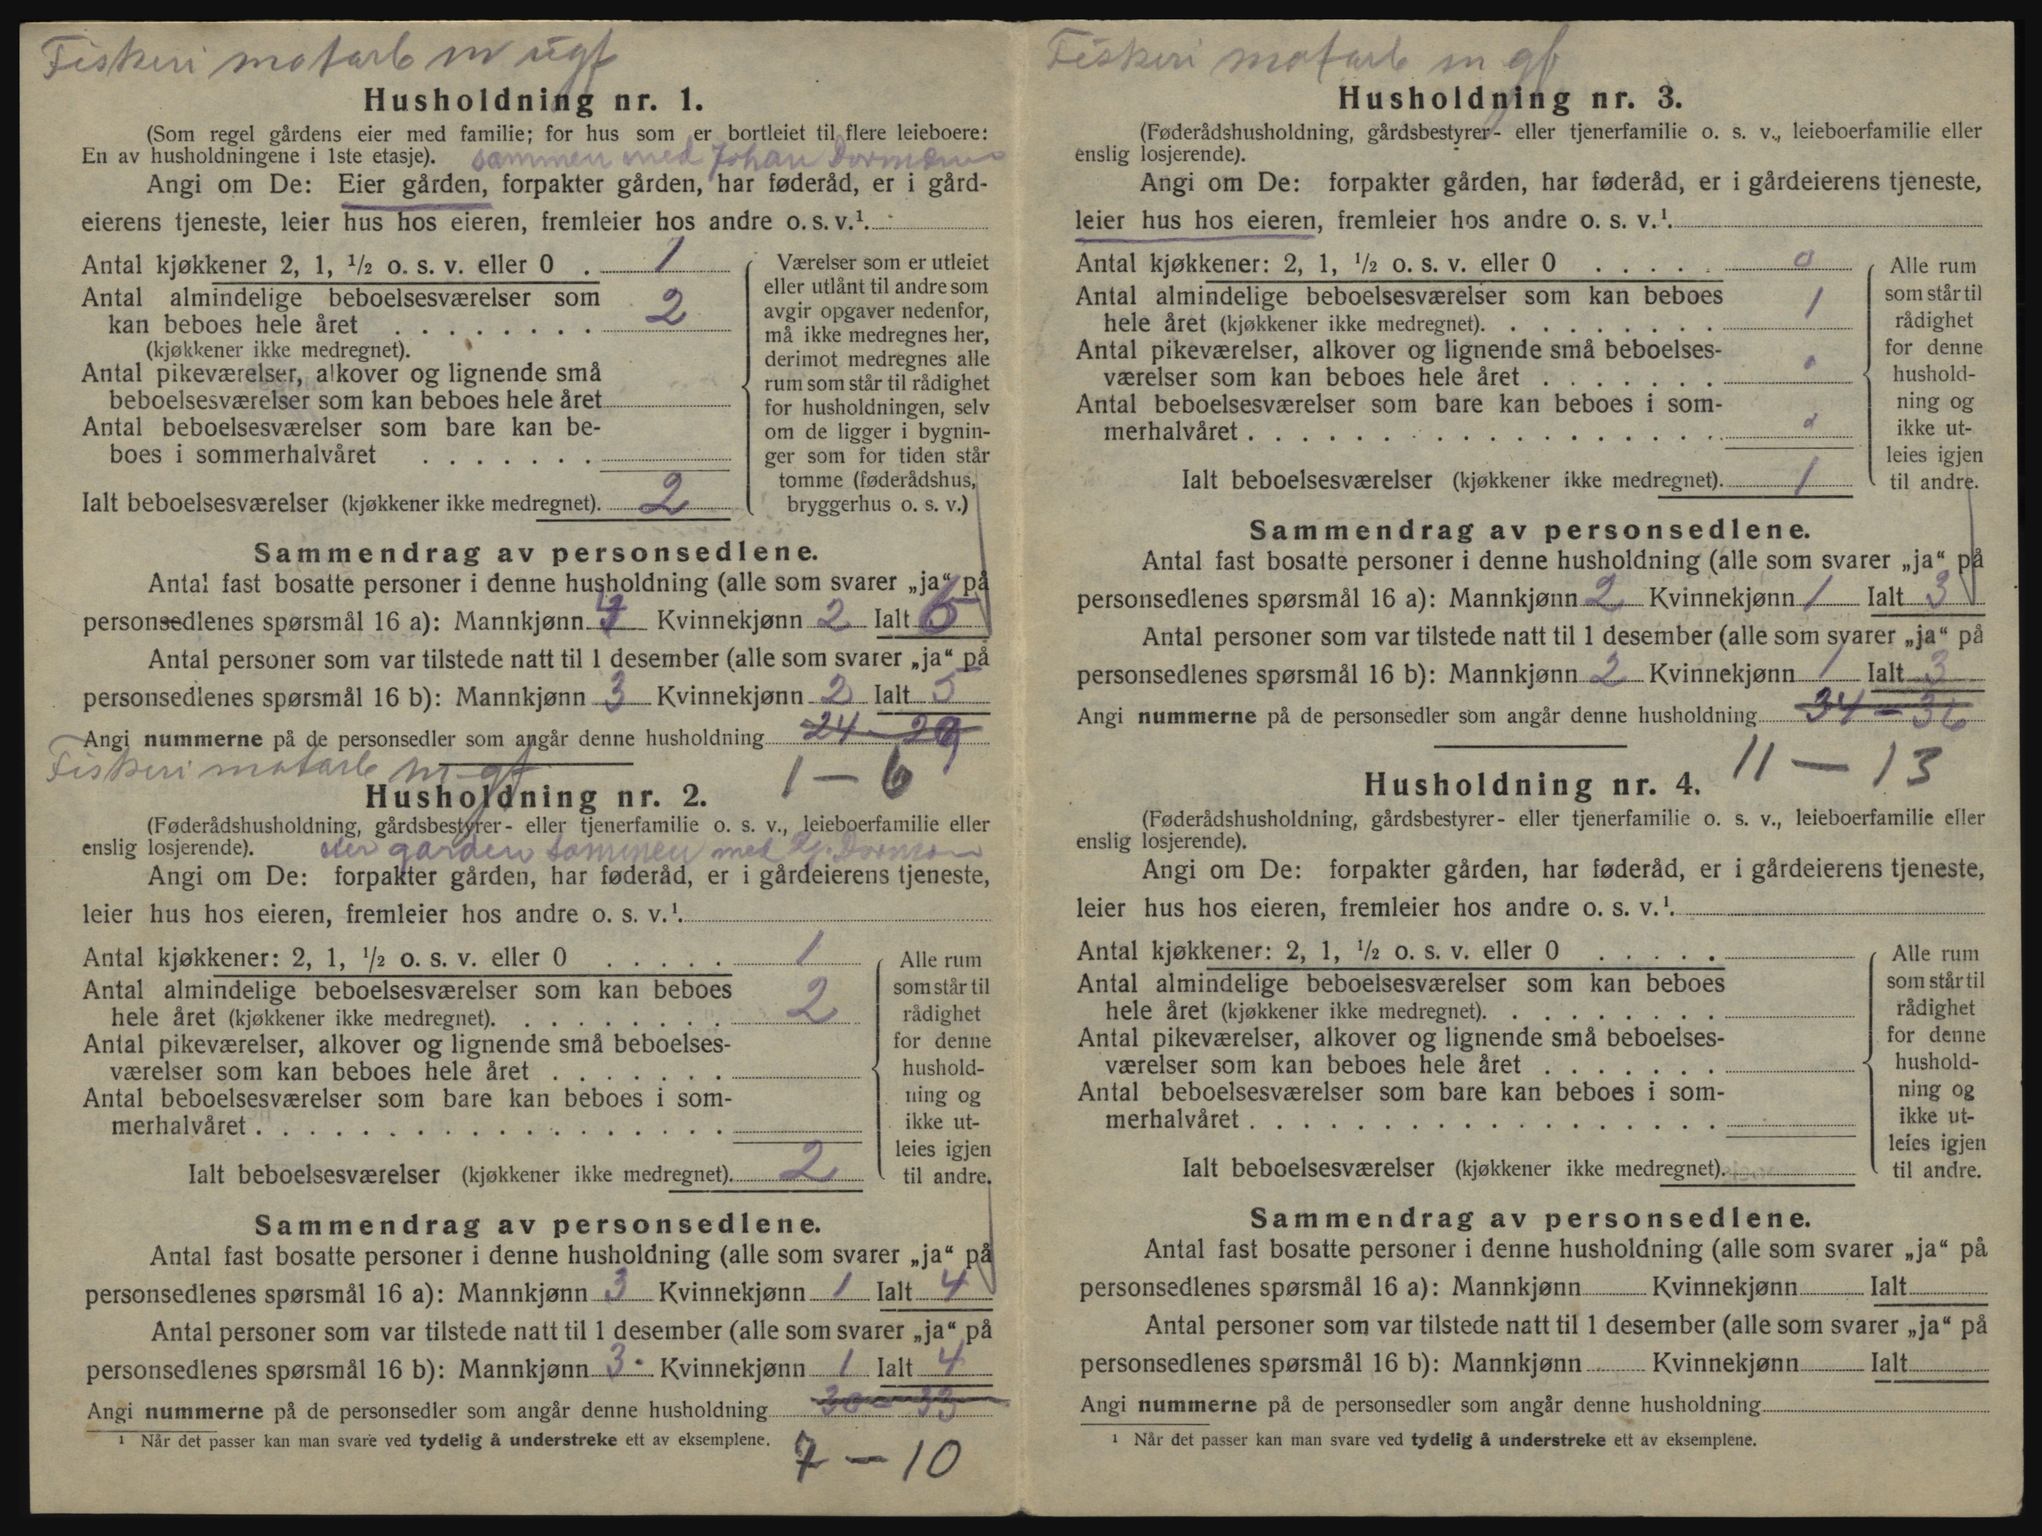 Fiskeri motarb m
Husholdning nr. 1.
(Som regel gårdens eier med familie; for hus som er bortleiet til flere leieboere:
En av husholdningene i 1ste etasje). sammen med Johan Dormæn
Angi om De: Eier gården, forpakter gården, har føderåd, er i gård-
eierens tjeneste, leier hus hos eieren, fremleier hos andre o. s. v.¹.
Antal kjøkkener 2, 1, ½ o. s. v. eller 0 . 1
Antal almindelige beboelsesværelser som
kan beboes hele året . . . . . . . . 2
(kjøkkener ikke medregnet).
Antal pikeværelser, alkover og lignende små
beboelsesværelser som kan beboes hele året
Antal beboelsesværelser som bare kan be-
boes i sommerhalvåret . . . . . . .
Ialt beboelsesværelser (kjøkkener ikke medregnet). 2
Værelser som er utleiet
eller utlånt til andre som
avgir opgaver nedenfor,
må ikke medregnes her,
derimot medregnes alle
rum som står til rådighet
for husholdningen, selv
om de ligger i bygnin-
ger som for tiden står
tomme (føderådshus,
bryggerhus o. s. v.)
Sammendrag av personsedlene.
Antal fast bosatte personer i denne husholdning (alle som svarer „ja“ på
personsedlenes spørsmål 16 a): Mannkjønn 4 Kvinnekjønn 2 Ialt 6
Antal personer som var tilstede natt til 1 desember (alle som svarer „ja“ på
personsedlenes spørsmål 16 b): Mannkjønn 3 Kvinnekjønn 2 Ialt 5
Angi nummerne på de personsedler som angår denne husholdning 24 - 29
1 - 6
Fiskeri motarb m gf
Husholdning nr. 2.
(Føderådshusholdning, gårdsbestyrer- eller tjenerfamilie o. s. v., leieboerfamilie eller
enslig losjerende). eier gården sammen med
Angi om De: forpakter gården, har føderåd, er i gårdeierens tjeneste,
leier hus hos eieren, fremleier hos andre o. s. v.¹.
Antal kjøkkener: 2, 1, ½ o. s. v. eller 0 . . . . . 1
Antal almindelige beboelsesværelser som kan beboes
hele året (kjøkkener ikke medregnet). . . . . . . . . 2
Antal pikeværelser, alkover og lignende små beboelses-
værelser som kan beboes hele året . . . . . . .
Antal beboelsesværelser som bare kan beboes i som-
merhalvåret . . . . . . . . . . . . . . . . . .
Ialt beboelsesværelser (kjøkkener ikke medregnet). 2
Alle rum
som står til
rådighet
for denne
hushold-
ning og
ikke ut-
leies igjen
til andre.
Sammendrag av personsedlene.
Antal fast bosatte personer i denne husholdning (alle som svarer „ja“ på
personsedlenes spørsmål 16 a): Mannkjønn 3 Kvinnekjønn 1 Ialt 4
Antal personer som var tilstede natt til 1 desember (alle som svarer „ja“ på
personsedlenes spørsmål 16 b): Mannkjønn 3 Kvinnekjønn 1 Ialt 4
Angi nummerne på de personsedler som angår denne husholdning 30 - 33
¹ Når det passer kan man svare ved tydelig å understreke ett av eksemplene.
7 - 10
Fiskeri motarb m gf
Husholdning nr. 3.
(Føderådshusholdning, gårdsbestyrer- eller tjenerfamilie o. s. v., leieboerfamilie eller
enslig losjerende).
Angi om De: forpakter gården, har føderåd, er i gårdeierens tjeneste,
leier hus hos eieren, fremleier hos andre o. s. v.¹.
Antal kjøkkener: 2, 1, ½ o. s. v. eller 0 . . . . . 0
Antal almindelige beboelsesværelser som kan beboes
hele året (kjøkkener ikke medregnet). . . . . . . . . 1
Antal pikeværelser, alkover og lignende små beboelses-
værelser som kan beboes hele året . . . . . . . 0
Antal beboelsesværelser som bare kan beboes i som-
merhalvåret . . . . . . . . . . . . . . . . . . 0
Ialt beboelsesværelser (kjøkkener ikke medregnet). 1
Alle rum
som står til
rådighet
for denne
hushold-
ning og
ikke ut-
leies igjen
til andre.
Sammendrag av personsedlene.
Antal fast bosatte personer i denne husholdning (alle som svarer „ja“ på
personsedlenes spørsmål 16 a): Mannkjønn 2 Kvinnekjønn 1 Ialt 3
Antal personer som var tilstede natt til 1 desember (alle som svarer „ja“ på
personsedlenes spørsmål 16 b): Mannkjønn 2 Kvinnekjønn 1 Ialt 3
Angi nummerne på de personsedler som angår denne husholdning 34 - 36
11 - 13
Husholdning nr. 4.
(Føderådshusholdning, gårdsbestyrer- eller tjenerfamilie o. s. v., leieboerfamilie eller
enslig losjerende).
Angi om De: forpakter gården, har føderåd, er i gårdeierens tjeneste,
leier hus hos eieren, fremleier hos andre o. s. v.¹.
Antal kjøkkener: 2, 1, ½ o. s. v. eller 0 . . . . .
Antal almindelige beboelsesværelser som kan beboes
hele året (kjøkkener ikke medregnet). . . . . . . . .
Antal pikeværelser, alkover og lignende små beboelses-
værelser som kan beboes hele året . . . . . . .
Antal beboelsesværelser som bare kan beboes i som-
merhalvåret . . . . . . . . . . . . . . . . . .
Ialt beboelsesværelser (kjøkkener ikke medregnet).
Alle rum
som står til
rådighet
for denne
hushold-
ning og
ikke ut-
leies igjen
til andre.
Sammendrag av personsedlene.
Antal fast bosatte personer i denne husholdning (alle som svarer „ja“ på
personsedlenes spørsmål 16 a): Mannkjønn Kvinnekjønn Ialt
Antal personer som var tilstede natt til 1 desember (alle som svarer „ja“ på
personsedlenes spørsmål 16 b): Mannkjønn Kvinnekjønn Ialt
Angi nummerne på de personsedler som angår denne husholdning
¹ Når det passer kan man svare ved tydelig å understreke ett av eksemplene.